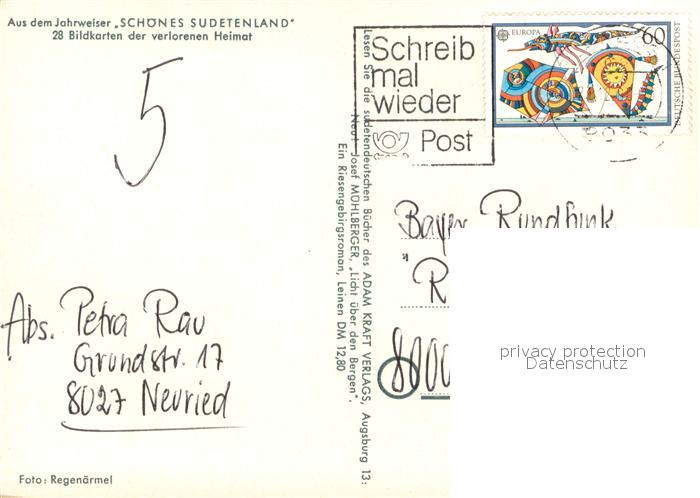 Aus dem Jahrweiser „SCHÖNES SUDETENLAND"
28 Bildkarten der verlorenen Heimat
5
Abs. Petra Rau
Grundstr. 17
8027 Neuried
Foto: Regenärmel
Lesen Sie die sudetendeutschen Bücher des ADAM KRAFT VERLAGS, Augsburg 13:
Neu! Josef MÜHLBERGER, „Licht über den Bergen",
Ein Riesengebirgsroman, Leinen DM 12,80
Schreib
mal
wieder
Post
EUROPA
60
DEUTSCHE BUNDESPOST
Bayer. Rundfunk
"R
8000
privacy protection
Datenschutz